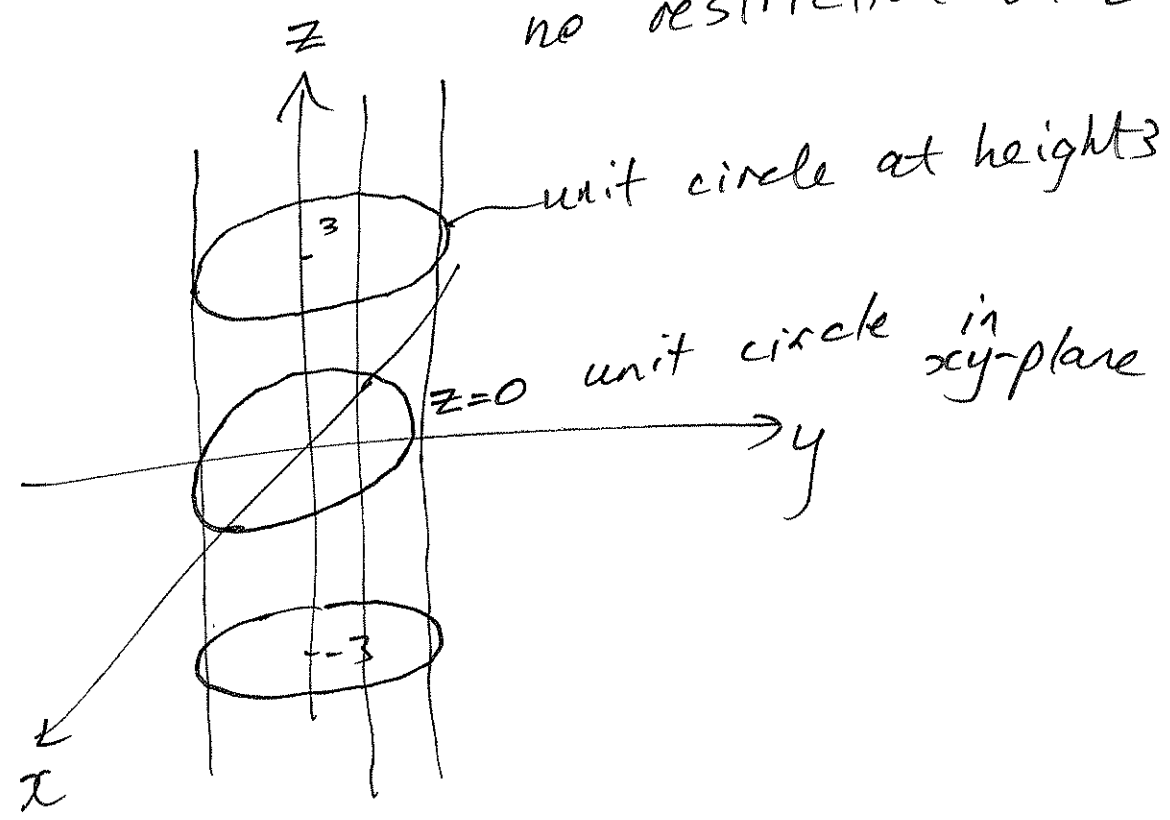 no restriction on z
z
unit circle at height 3
3
unit circle in
xy-plane
z=0
y
-3
x